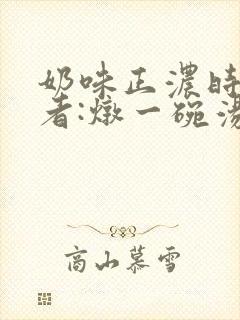 奶味正濃時
者:燉一碗湯
高山慕雪